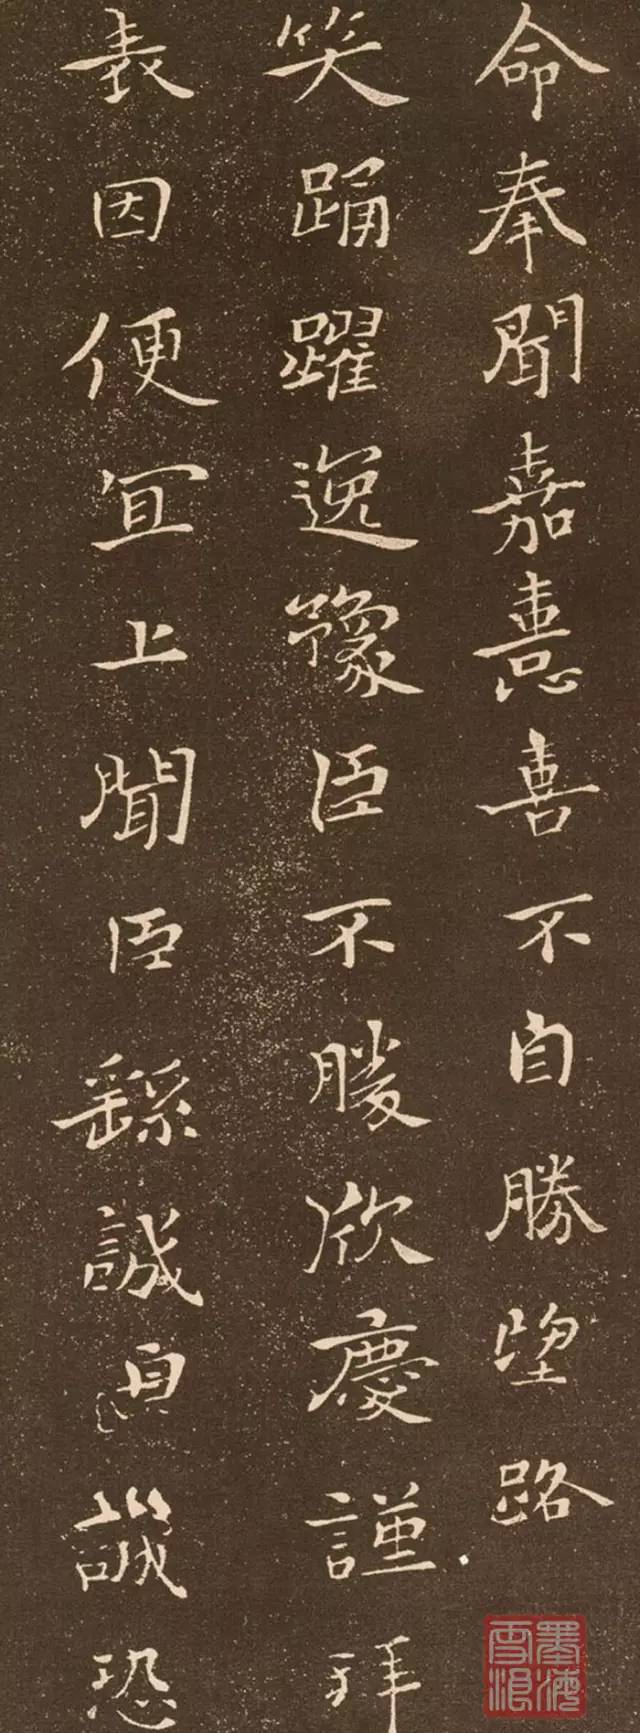 命奉聞嘉憙喜不自勝望路
笑踊躍逸豫臣不勝欣慶謹拜
表因便宜上聞臣繇誠皇誠恐
墨海
雪浪